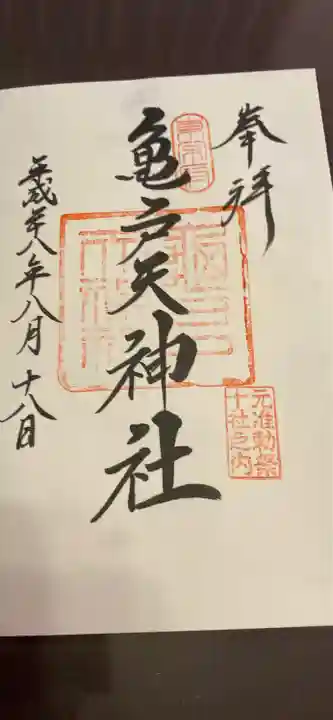 奉拝
亀戸天神社
元准勅祭
十社之内
平成廿八年八月十八日